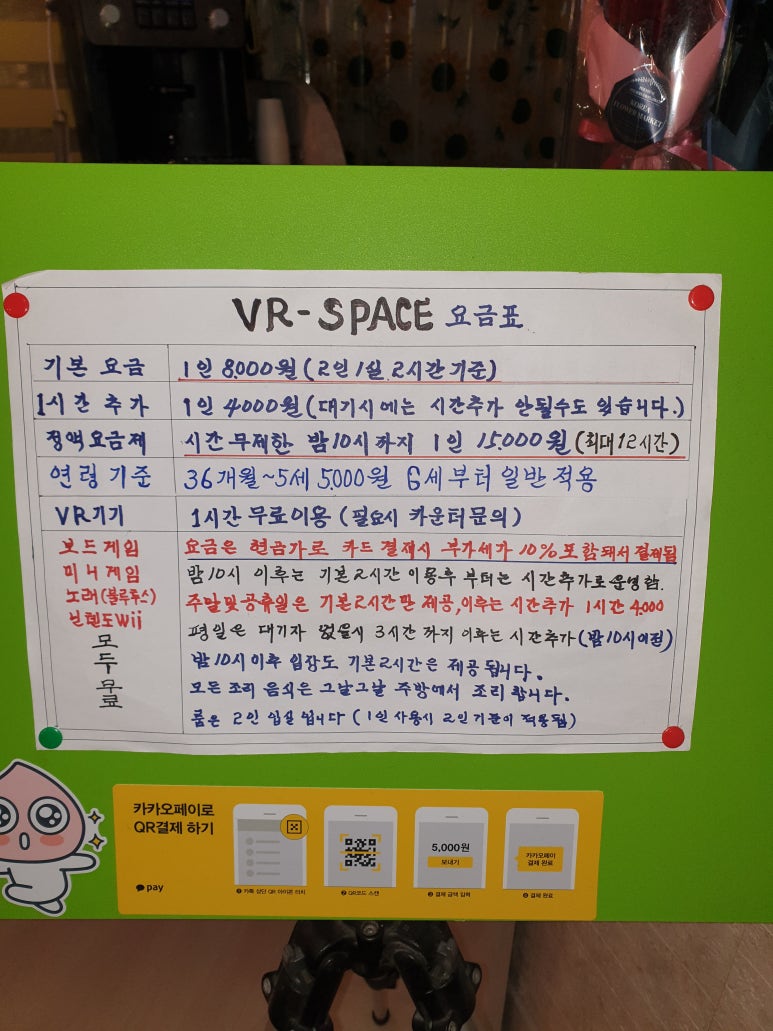 KOREA
FLOWER MARKET
VR-SPACE 요금표
기본 요금 1인 8,000원 (2인 1실 2시간 기준)
1시간 추가 1인 4000원 (대기시에는 시간추가 안될수도 있습니다.)
정액요금제 시간 무제한 밤10시까지 1인 15,000원 (최대12시간)
연령 기준 36개월~5세 5,000원 6세부터 일반적용
VR기기 1시간 무료이용 (필요시 카운터문의)
보드게임 요금은 현금가로 카드 결재시 부가세가 10% 포함돼서 결재됨
미니게임 밤10시 이후는 기본2시간 이용후 부터는 시간추가로 운영함.
노래(블루투스) 주말및공휴일은 기본2시간만 제공,이후는 시간추가 1시간 4,000
닌텐도Wii 평일은 대기자 없을시 3시간까지 이후는 시간추가 (밤10시이전)
모두무료
밤10시이후 입장도 기본2시간은 제공됩니다.
모든 조리 음식은 그날그날 주방에서 조리합니다.
룸은 2인 입실입니다 (1인 사용시 2인 기준이 적용됨)
카카오페이로
QR결제 하기
5,000원
보내기
카카오페이
결제 완료
pay
❶ 카톡 상단 QR 아이콘 터치
❷ QR코드 스캔
❸ 결제 금액 입력
❹ 결제 완료